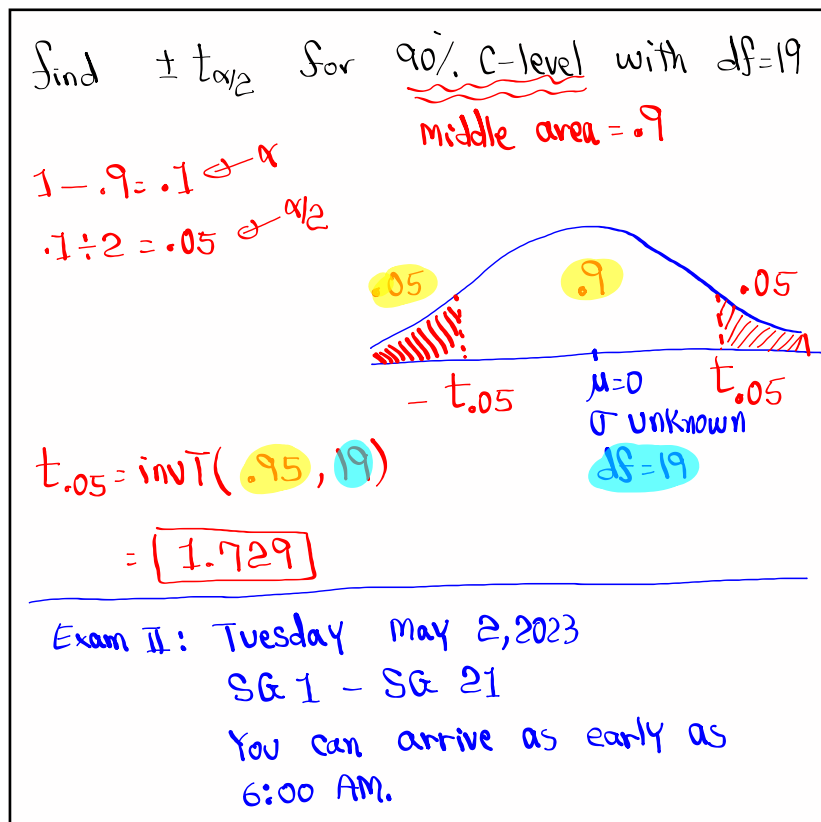 find ± tα/2 for 90% C-level with df=19
Middle area = .9
1 - .9 = .1 ← α
.1 ÷ 2 = .05 ← α/2
.05 .9 .05
- t.05 μ=0 t.05
σ unknown
t.05 = invT( .95 , 19 ) df=19
= 1.729
Exam II: Tuesday May 2, 2023
SG 1 - SG 21
You can arrive as early as
6:00 AM.